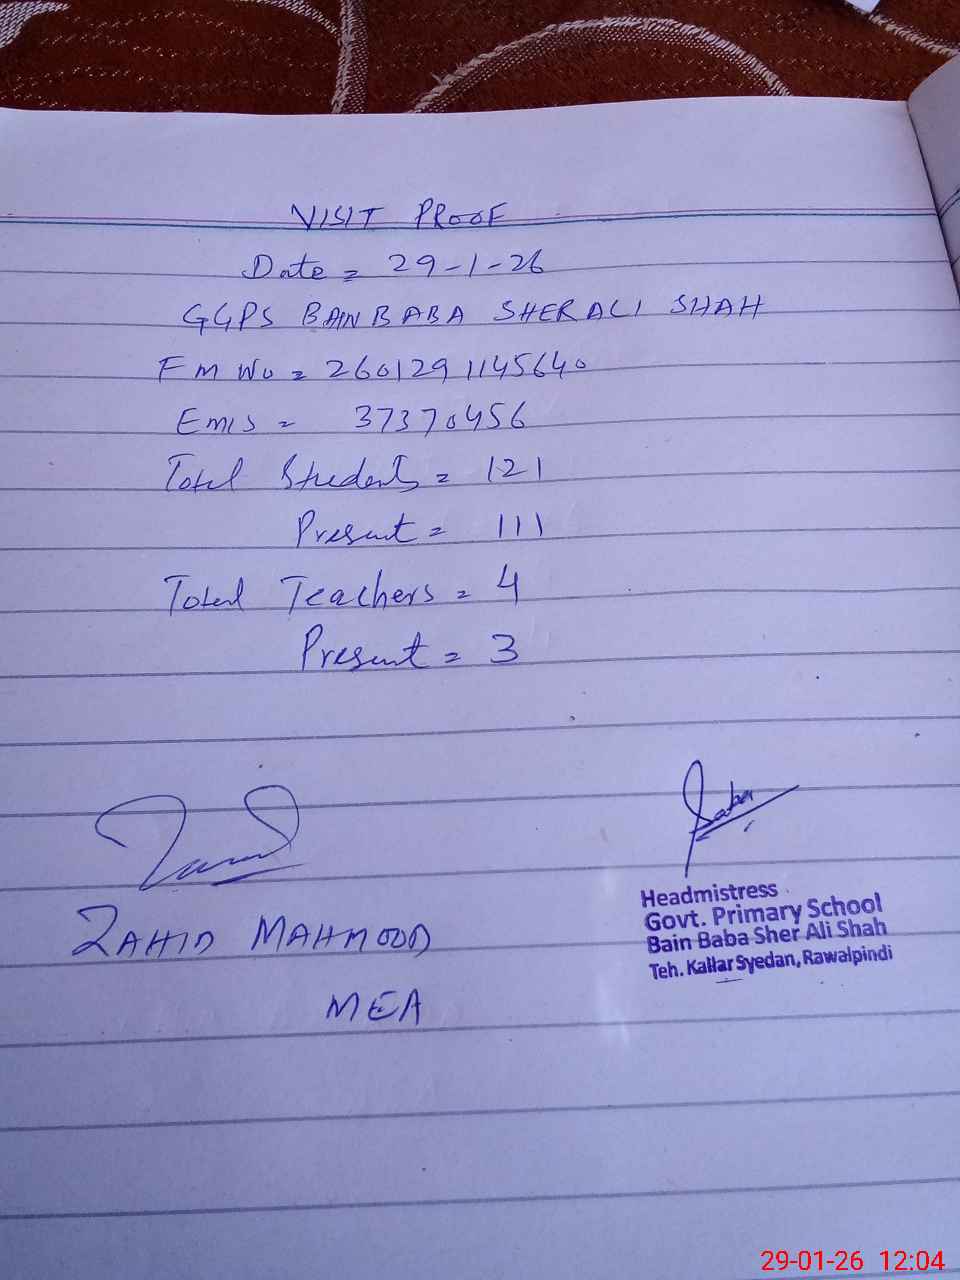 VISIT PROOF
Date = 29-1-26
GGPS BAIN BABA SHER ALI SHAH
FM No = 2601291145640
Emis = 37370456
Total Students = 121
Present = 111
Total Teachers = 4
Present = 3
Saba
Headmistress
Govt. Primary School
Bain Baba Sher Ali Shah
Teh. Kallar Syedan, Rawalpindi
ZAHID MAHMOOD
MEA
29-01-26 12:04